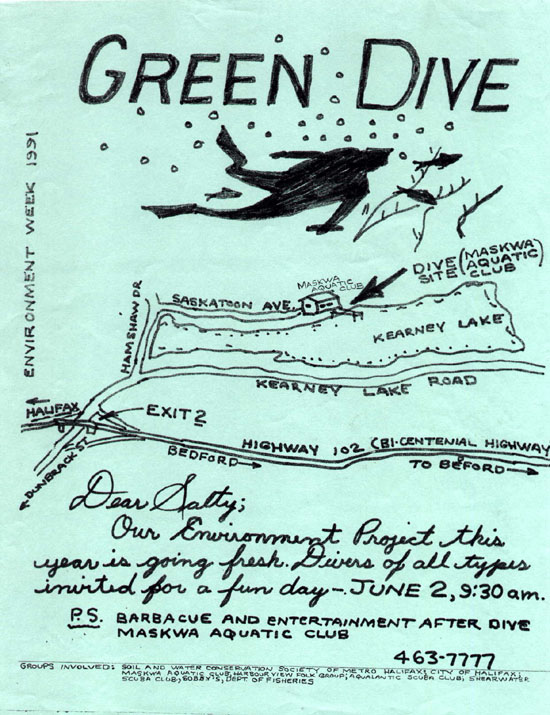 GREEN DIVE
ENVIRONMENT WEEK 1991
DIVE (MASKWA
SITE AQUATIC)
CLUB
MASKWA
AQUATIC
CLUB
SASKATOON AVE.
HAMSHAW DR
KEARNEY LAKE
KEARNEY LAKE ROAD
HALIFAX
EXIT 2
DUNBRACK ST.
BEDFORD
HIGHWAY 102 (BI-CENTENIAL HIGHWAY
TO BEFORD
Dear Salty;
Our Environment Project this
year is going fresh. Divers of all types
invited for a fun day - JUNE 2, 9:30 am.
P.S. BARBACUE AND ENTERTAINMENT AFTER DIVE
MASKWA AQUATIC CLUB
463-7777
GROUPS INVOLVED: SOIL AND WATER CONSERVATION SOCIETY OF METRO HALIFAX; CITY OF HALIFAX;
MASKWA AQUATIC CLUB; HARBOUR VIEW FOLK GROUP; AQUALANTIC SCUBA CLUB; SHEARWATER
SCUBA CLUB; BOBBY'S; DEPT. OF FISHERIES